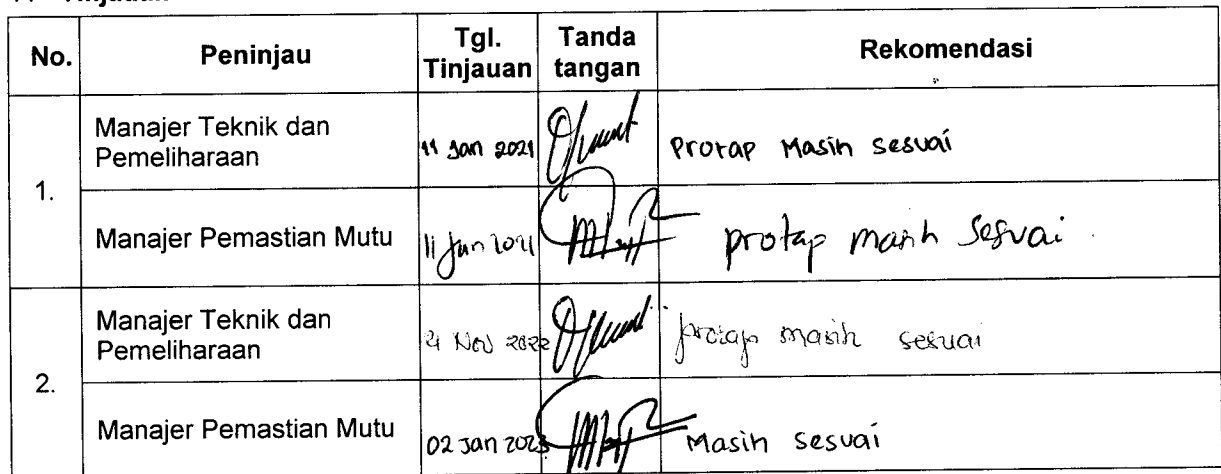 No. Peninjau Tgl. Tinjauan Tanda tangan Rekomendasi
1.
Manajer Teknik dan
Pemeliharaan
11 Jan 2021
Protap Masih sesuai
Manajer Pemastian Mutu
11 Jan 2021
protap masih sesuai.
2.
Manajer Teknik dan
Pemeliharaan
Nov 2022
protap masih sesuai
Manajer Pemastian Mutu
02 Jan 2023
Masih sesuai